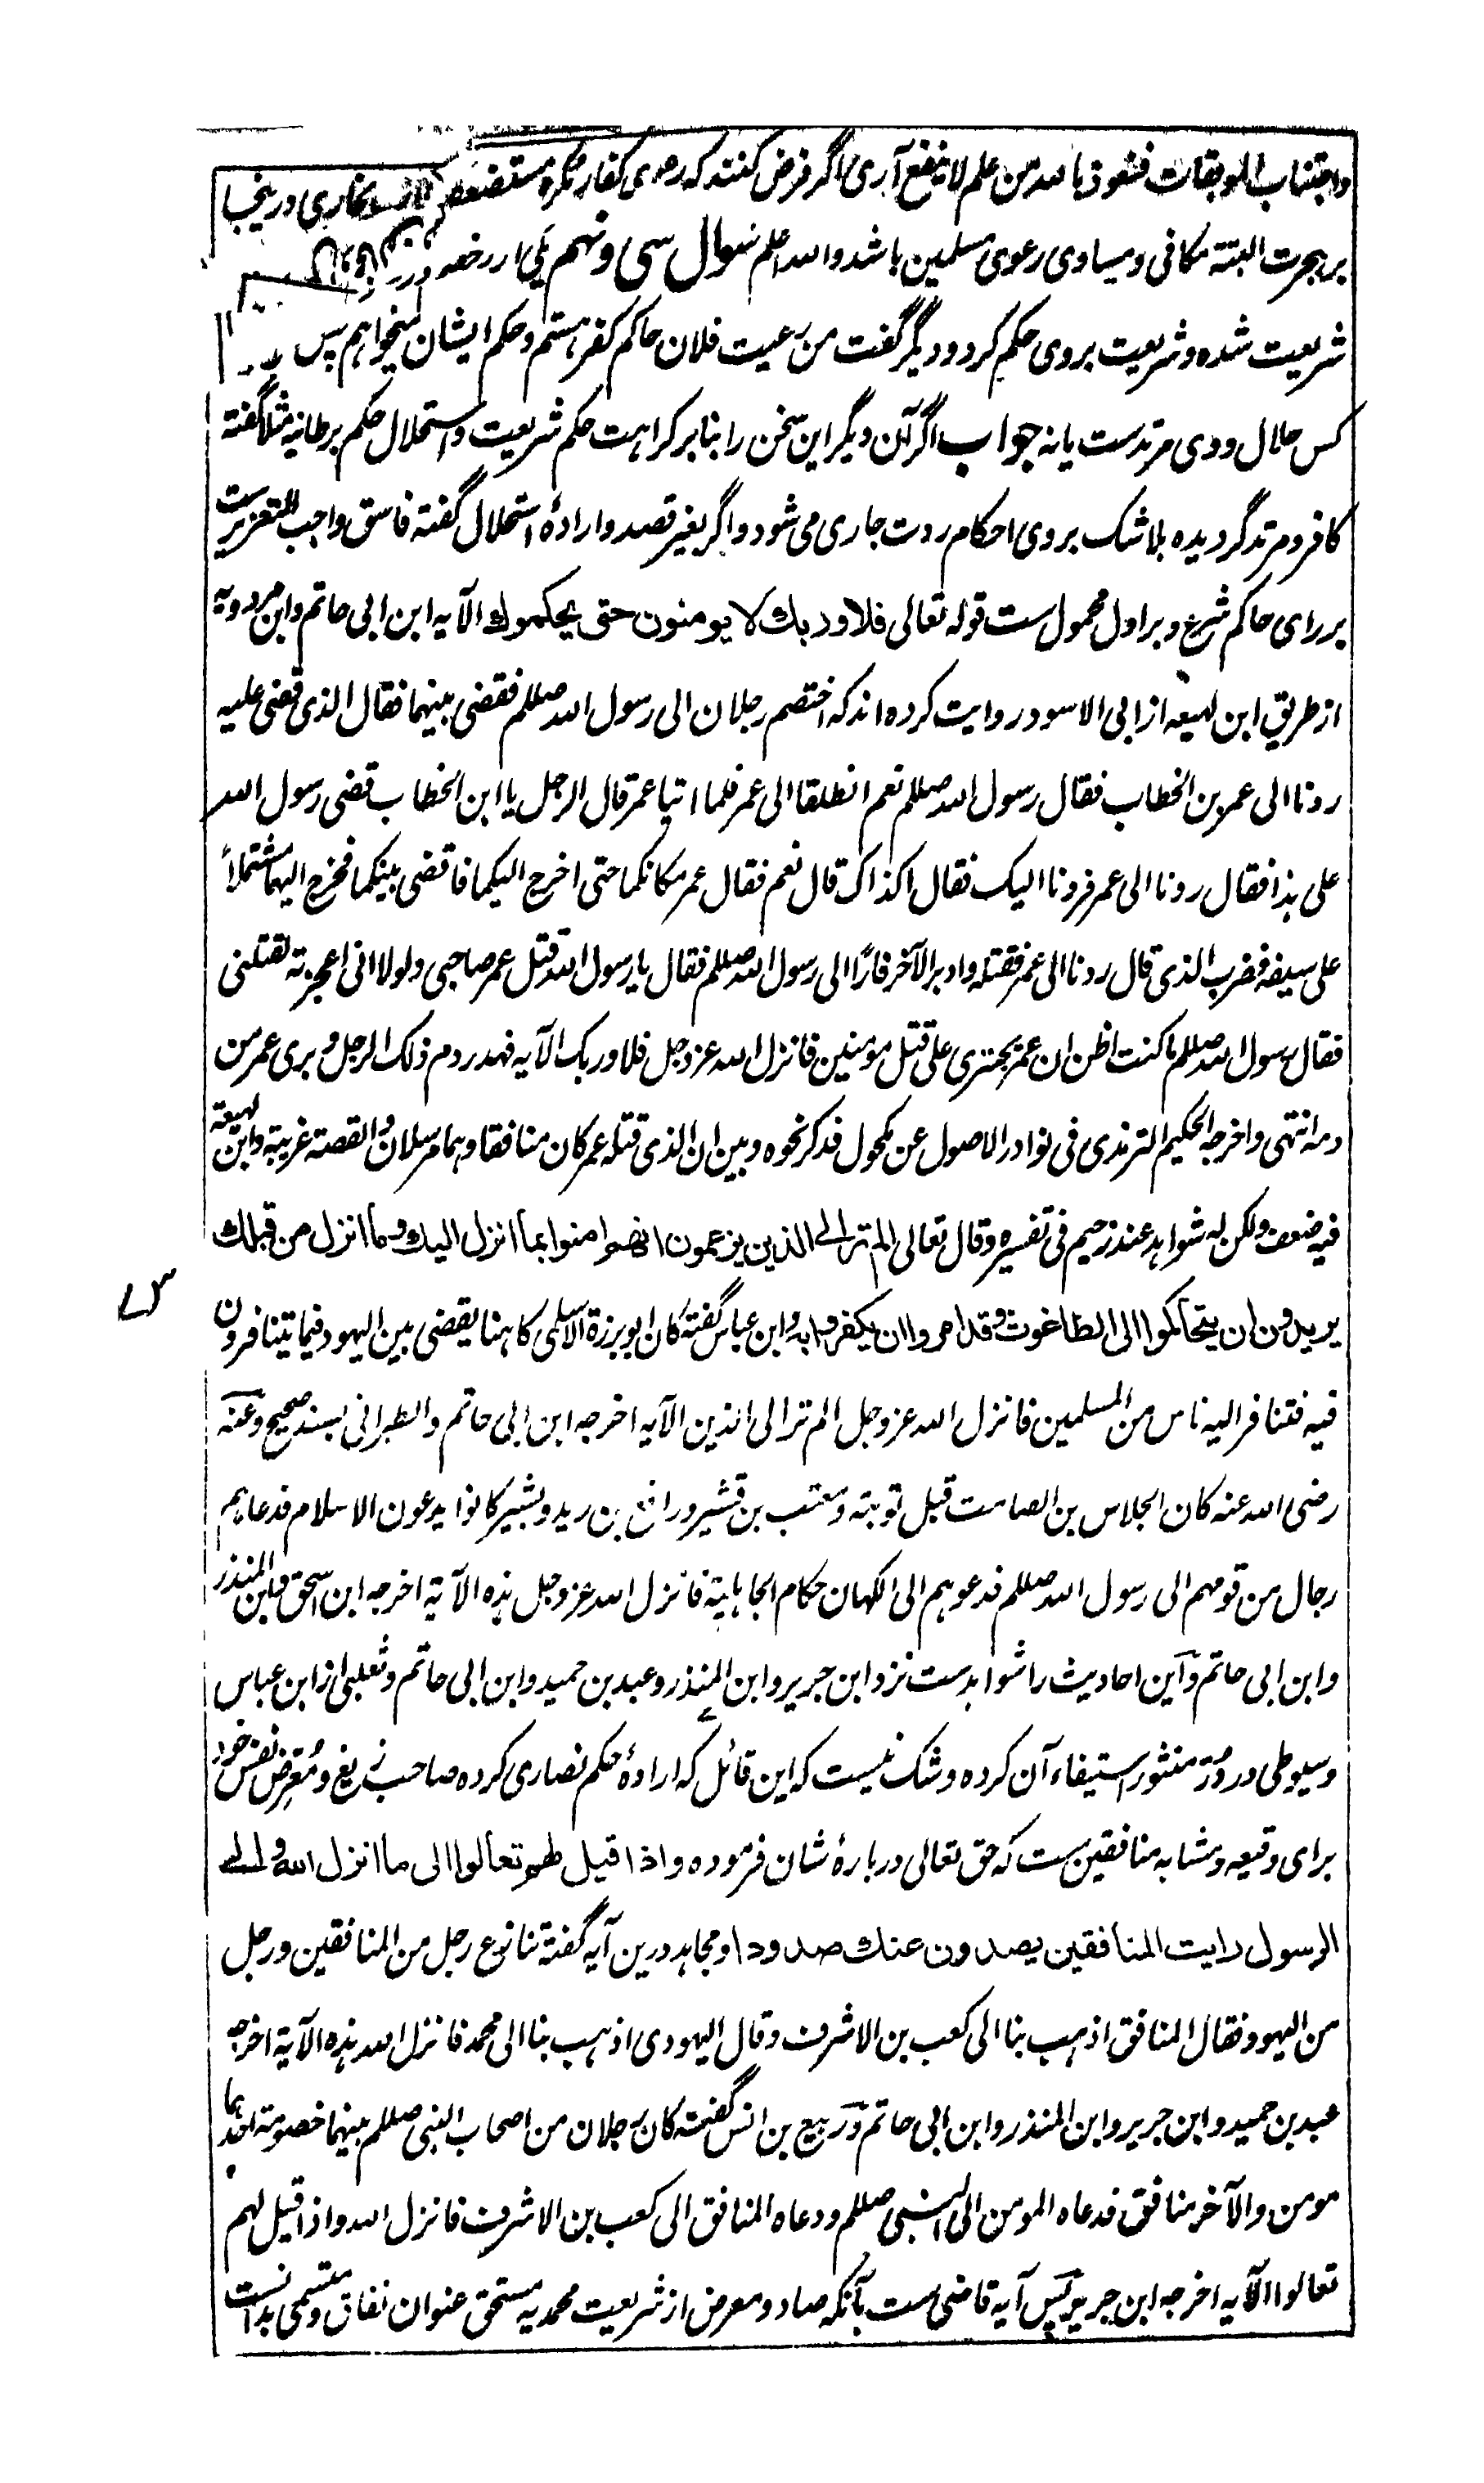 واجتناب الموبقات فنعوذ بالله من علم لا ینفع آری اگر فرض کنند که دعوی کفار مکره مستضعف بخاری درینجا
بر هجرت البته مکافی و مساوی دعوی مسلمین باشد والله اعلم سوال سی و نهم یکی از در خصومت
شریعت شده و شریعت بروی حکم کرد و دیگر گفت من رعیت فلان حاکم کفر هستم و حکم ایشان میخواهم پس
کس حلال ودی مرتدست یا نه جواب اگر آن دیگر این سخن را بنا بر کراهت حکم شریعت و استحلال حکم برطانیه مثلا گفته
کافر و مرتد گردیده بلا شک بروی احکام ردت جاری می شود و اگر بغیر قصد و ارادهٔ استحلال گفته فاسق واجب التعزیرست
بر رای حاکم شرع و بر اول محمول ست قوله تعالی فلا وربك لا یومنون حتی یحکموك الآیه ابن ابی حاتم و ابن مردویه
از طریق ابن لهیعه از ابی الاسود روایت کرده اند که اختصم رجلان الی رسول الله صللم فقضی بینهما فقال الذی قضی علیه
ردنا الی عمر بن الخطاب فقال رسول الله صللم نعم انطلقا الی عمر فلما اتیا عمر قال الرجل یا ابن الخطاب قضی رسول الله
علی هذا فقال ردنا الی عمر فردنا الیک فقال اکذاک قال نعم فقال عمر مکانکما حتی اخرج الیکما فاقضی بینکما فخرج الیهما مشتملاً
علی سیفه فضرب الذی قال ردنا الی عمر فقتله وادبر الآخر فارًا الی رسول الله صللم فقال یا رسول الله قتل عمر صاحبی ولولا انی اعجزته لقتلنی
فقال رسول الله صللم ما کنت اظن ان عمر یجتری علی قتل مومنین فانزل الله عز وجل فلا وربک الآیه فهدر دم ذلک الرجل و بری عمر من
دمه انتهی واخرجه الحکیم الترمذی فی نوادر الاصول عن مکحول فذکر نحوه وبین ان الذی قتله عمر کان منافقا وهما مرسلان والقصة غریبة وابن لهیعة
فیه ضعف ولکن له شواهد عند دحیم فی تفسیره وقال تعالی الم تر الی الذین یزعمون انهم امنوا بما انزل الیك وما انزل من قبلك
یریدون ان یتحاکموا الی الطاغوت وقد امروا ان یکفروا به وابن عباس گفته کان ابو برزة الاسلمی کاهنا یقضی بین الیهود فیما یتنافرون
فیه فتنافر الیه ناس من المسلمین فانزل الله عز وجل الم تر الی الذین الآیه اخرجه ابن ابی حاتم والطبرانی بسند صحیح وعنه
رضی الله عنه کان الجلاس بن الصامت قبل توبته ومعتب بن قشیر ورافع بن زید وبشیر کانوا یدعون الاسلام فدعاهم
رجال من قومهم الی رسول الله صللم فدعوهم الی الکهان حکام الجاهلیة فانزل الله عز وجل هذه الآیة اخرجه ابن اسحق وابن المنذر
وابن ابی حاتم و این احادیث را شواهدست نزد ابن جریر وابن المنذر وعبد بن حمید وابن ابی حاتم وثعلبی از ابن عباس
وسیوطی در دُرّ منثور استیفاء آن کرده وشک نیست که این قائل که ارادهٔ حکم نصاری کرده صاحب زیغ ومُعرِض نفس خود
برای وقیعه ومشابه منافقین ست که حق تعالی دربارهٔ شان فرموده واذا قیل لهم تعالوا الی ما انزل الله والی
الرسول رایت المنافقین یصدون عنك صدودا ومجاهد درین آیه گفته تنازع رجل من المنافقین ورجل
من الیهود فقال المنافق اذهب بنا الی کعب بن الاشرف وقال الیهودی اذهب بنا الی محمد فانزل الله هذه الآیة اخرجه
عبد بن حمید وابن جریر وابن المنذر وابن ابی حاتم وربیع بن انس گفته کان رجلان من اصحاب النبی صللم بینهما خصومة احدهما
مومن والآخر منافق فدعاه المومن الی النبی صللم ودعاه المنافق الی کعب بن الاشرف فانزل الله واذا قیل لهم
تعالوا الآیه اخرجه ابن جریر پس آیه قاضی ست بآنکه صاد ومعرض از شریعت محمدیه مستحق عنوان نفاق ومتسمی بدانست